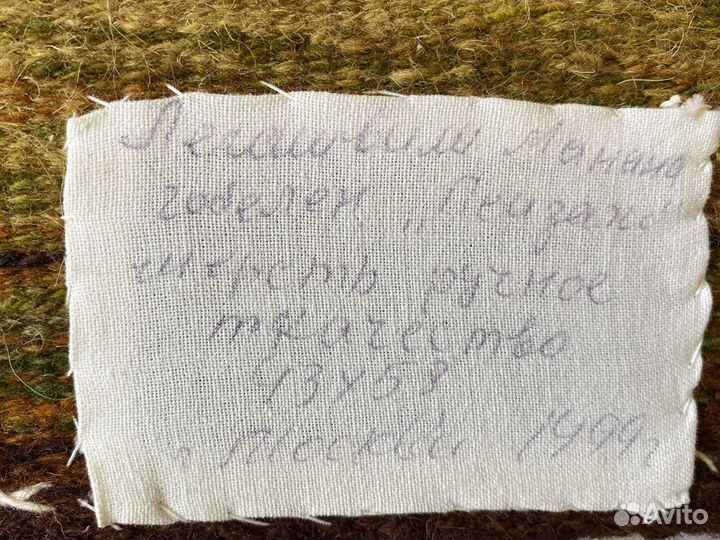 Манана
гобелен „Пейзаж"
шерсть ручное
ткачество
43х58
г. Москва 1999г
Avito